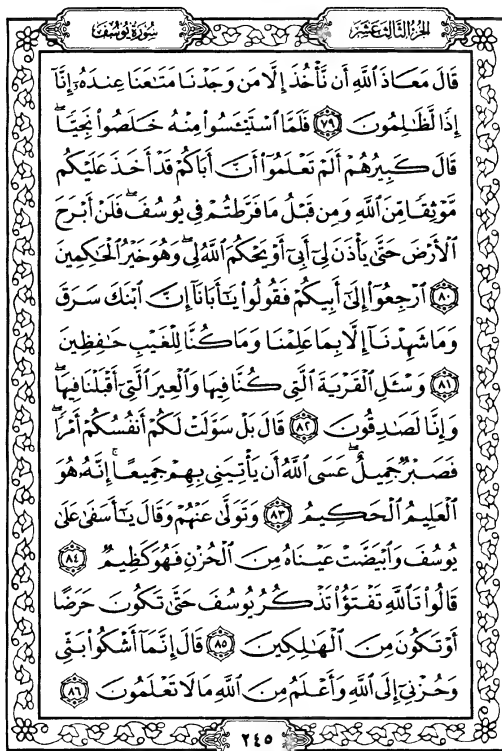 الجزء الثالث عشر
سورة يوسف
قَالَ مَعَاذَ اللَّهِ أَن نَّأْخُذَ إِلَّا مَن وَجَدْنَا مَتَاعَنَا عِندَهُ إِنَّا
إِذًا لَّظَالِمُونَ ٧٩ فَلَمَّا اسْتَيْئَسُوا مِنْهُ خَلَصُوا نَجِيًّا
قَالَ كَبِيرُهُمْ أَلَمْ تَعْلَمُوا أَنَّ أَبَاكُمْ قَدْ أَخَذَ عَلَيْكُم
مَّوْثِقًا مِّنَ اللَّهِ وَمِن قَبْلُ مَا فَرَّطتُمْ فِي يُوسُفَ فَلَنْ أَبْرَحَ
الْأَرْضَ حَتَّى يَأْذَنَ لِي أَبِي أَوْ يَحْكُمَ اللَّهُ لِي وَهُوَ خَيْرُ الْحَاكِمِينَ
٨٠ ارْجِعُوا إِلَى أَبِيكُمْ فَقُولُوا يَا أَبَانَا إِنَّ ابْنَكَ سَرَقَ
وَمَا شَهِدْنَا إِلَّا بِمَا عَلِمْنَا وَمَا كُنَّا لِلْغَيْبِ حَافِظِينَ
٨١ وَسْئَلِ الْقَرْيَةَ الَّتِي كُنَّا فِيهَا وَالْعِيرَ الَّتِي أَقْبَلْنَا فِيهَا
وَإِنَّا لَصَادِقُونَ ٨٢ قَالَ بَلْ سَوَّلَتْ لَكُمْ أَنفُسُكُمْ أَمْرًا
فَصَبْرٌ جَمِيلٌ عَسَى اللَّهُ أَن يَأْتِيَنِي بِهِمْ جَمِيعًا إِنَّهُ هُوَ
الْعَلِيمُ الْحَكِيمُ ٨٣ وَتَوَلَّى عَنْهُمْ وَقَالَ يَا أَسَفَى عَلَى
يُوسُفَ وَابْيَضَّتْ عَيْنَاهُ مِنَ الْحُزْنِ فَهُوَ كَظِيمٌ ٨٤
قَالُوا تَاللَّهِ تَفْتَؤُا تَذْكُرُ يُوسُفَ حَتَّى تَكُونَ حَرَضًا
أَوْ تَكُونَ مِنَ الْهَالِكِينَ ٨٥ قَالَ إِنَّمَا أَشْكُوا بَثِّي
وَحُزْنِي إِلَى اللَّهِ وَأَعْلَمُ مِنَ اللَّهِ مَا لَا تَعْلَمُونَ ٨٦
٢٤٥